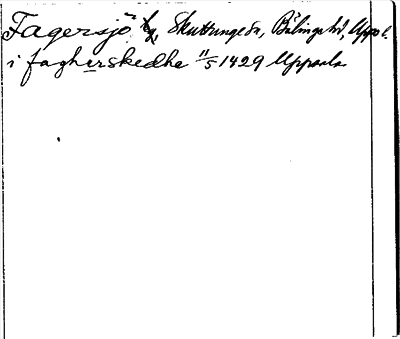 Fagersjö hg, Skuttunge sn, Bälinge hd, Upps. l.
i fagherskedhe 11/5 1429 Uppsala